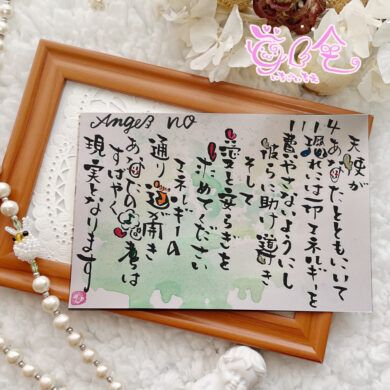 Angel NO
天使が
4 あなたとともにいて
111 恐れには一切エネルギーを
費やさないようにし
彼らに助け導き
そして
愛と安らぎを
めてください
エネルギーの
通り道が開き
あなたの思考は
すばやく
現実となります